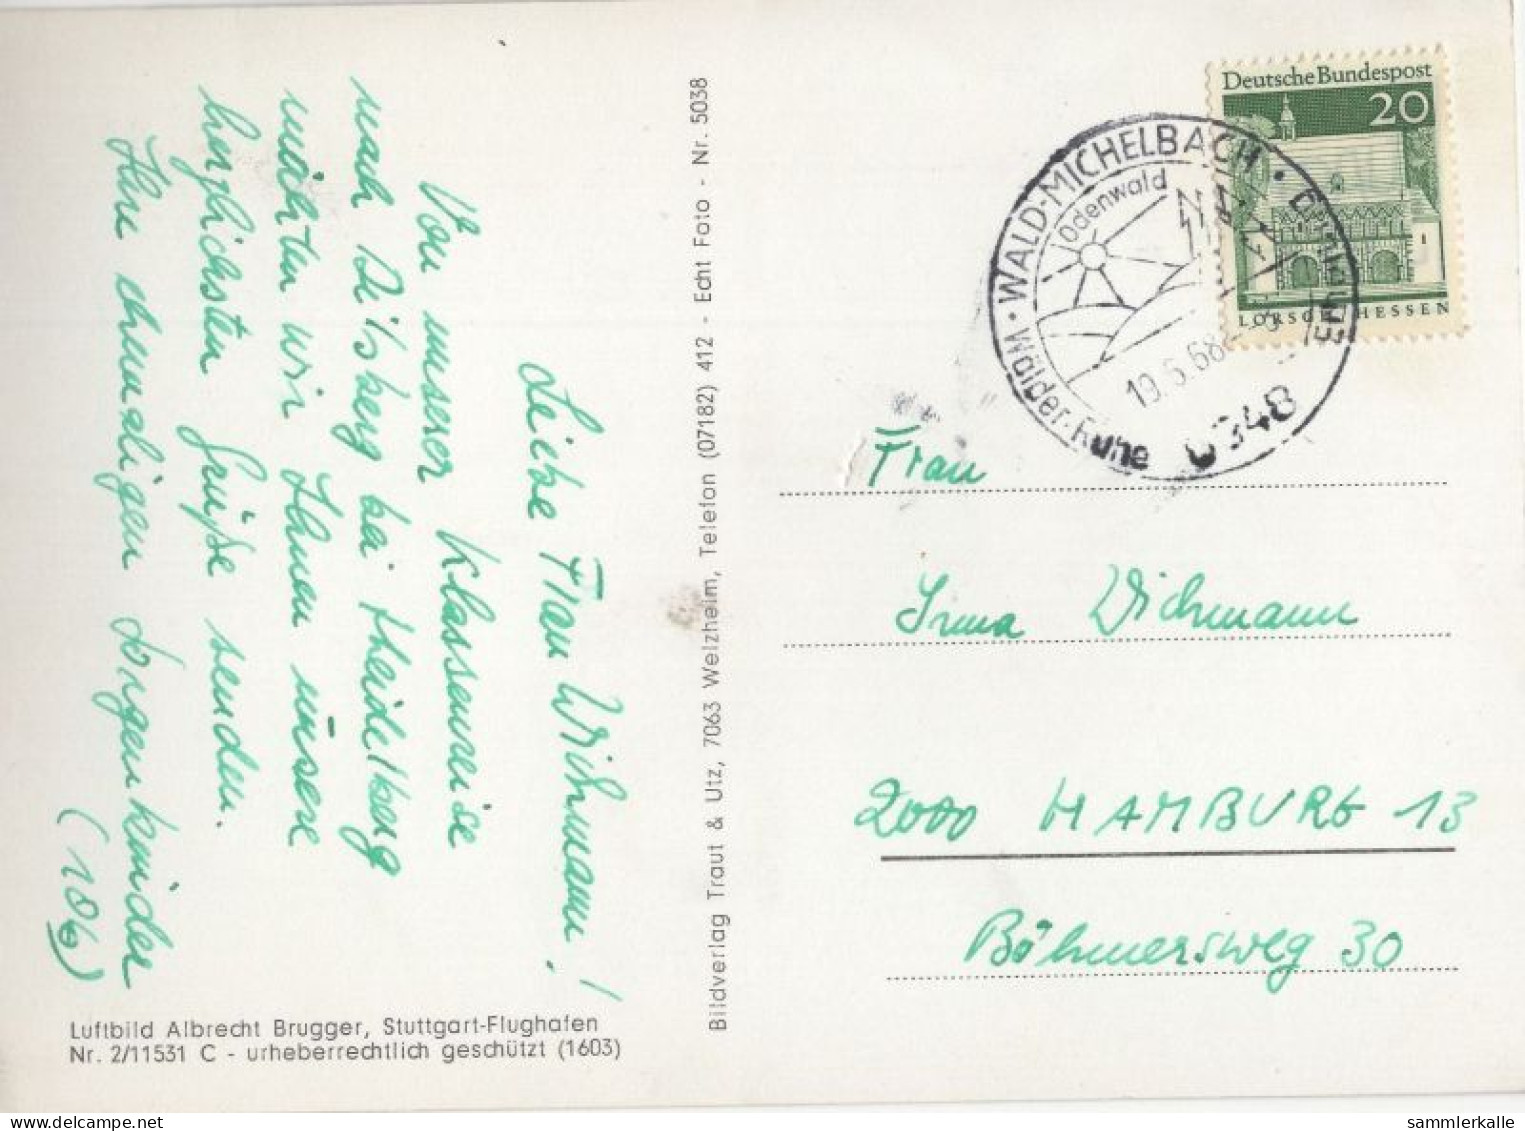 Liebe Frau Wichmann!
Von unserer Klassenreise
nach Dilsberg bei Heidelberg
möchten wir Ihnen unsere
herzlichsten Grüße senden.
Ihre ehemaligen Sorgenkinder
(10b)
Luftbild Albrecht Brugger, Stuttgart-Flughafen
Nr. 2/11531 C - urheberrechtlich geschützt (1603)
Bildverlag Traut & Utz, 7063 Welzheim, Telefon (07182) 412 - Echt Foto - Nr. 5038
Deutsche Bundespost
20
LORSCH HESSEN
· WALD-MICHELBACH ·
Odenwald
Wälder · Ruhe
Erholung
19.6.68
6948
Frau
Irma Wichmann
2000 HAMBURG 13
Böhmersweg 30
sammlerkalle